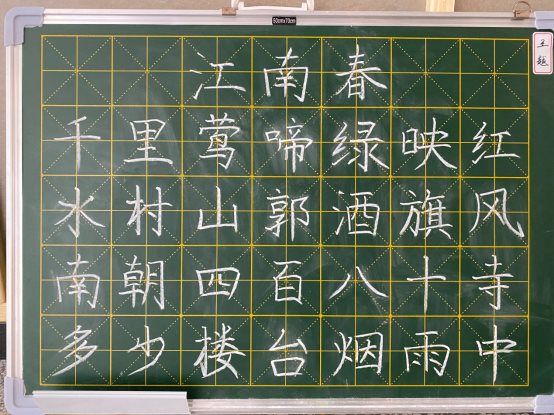 50cmx70cm
主题
江南春
千里莺啼绿映红
水村山郭酒旗风
南朝四百八十寺
多少楼台烟雨中